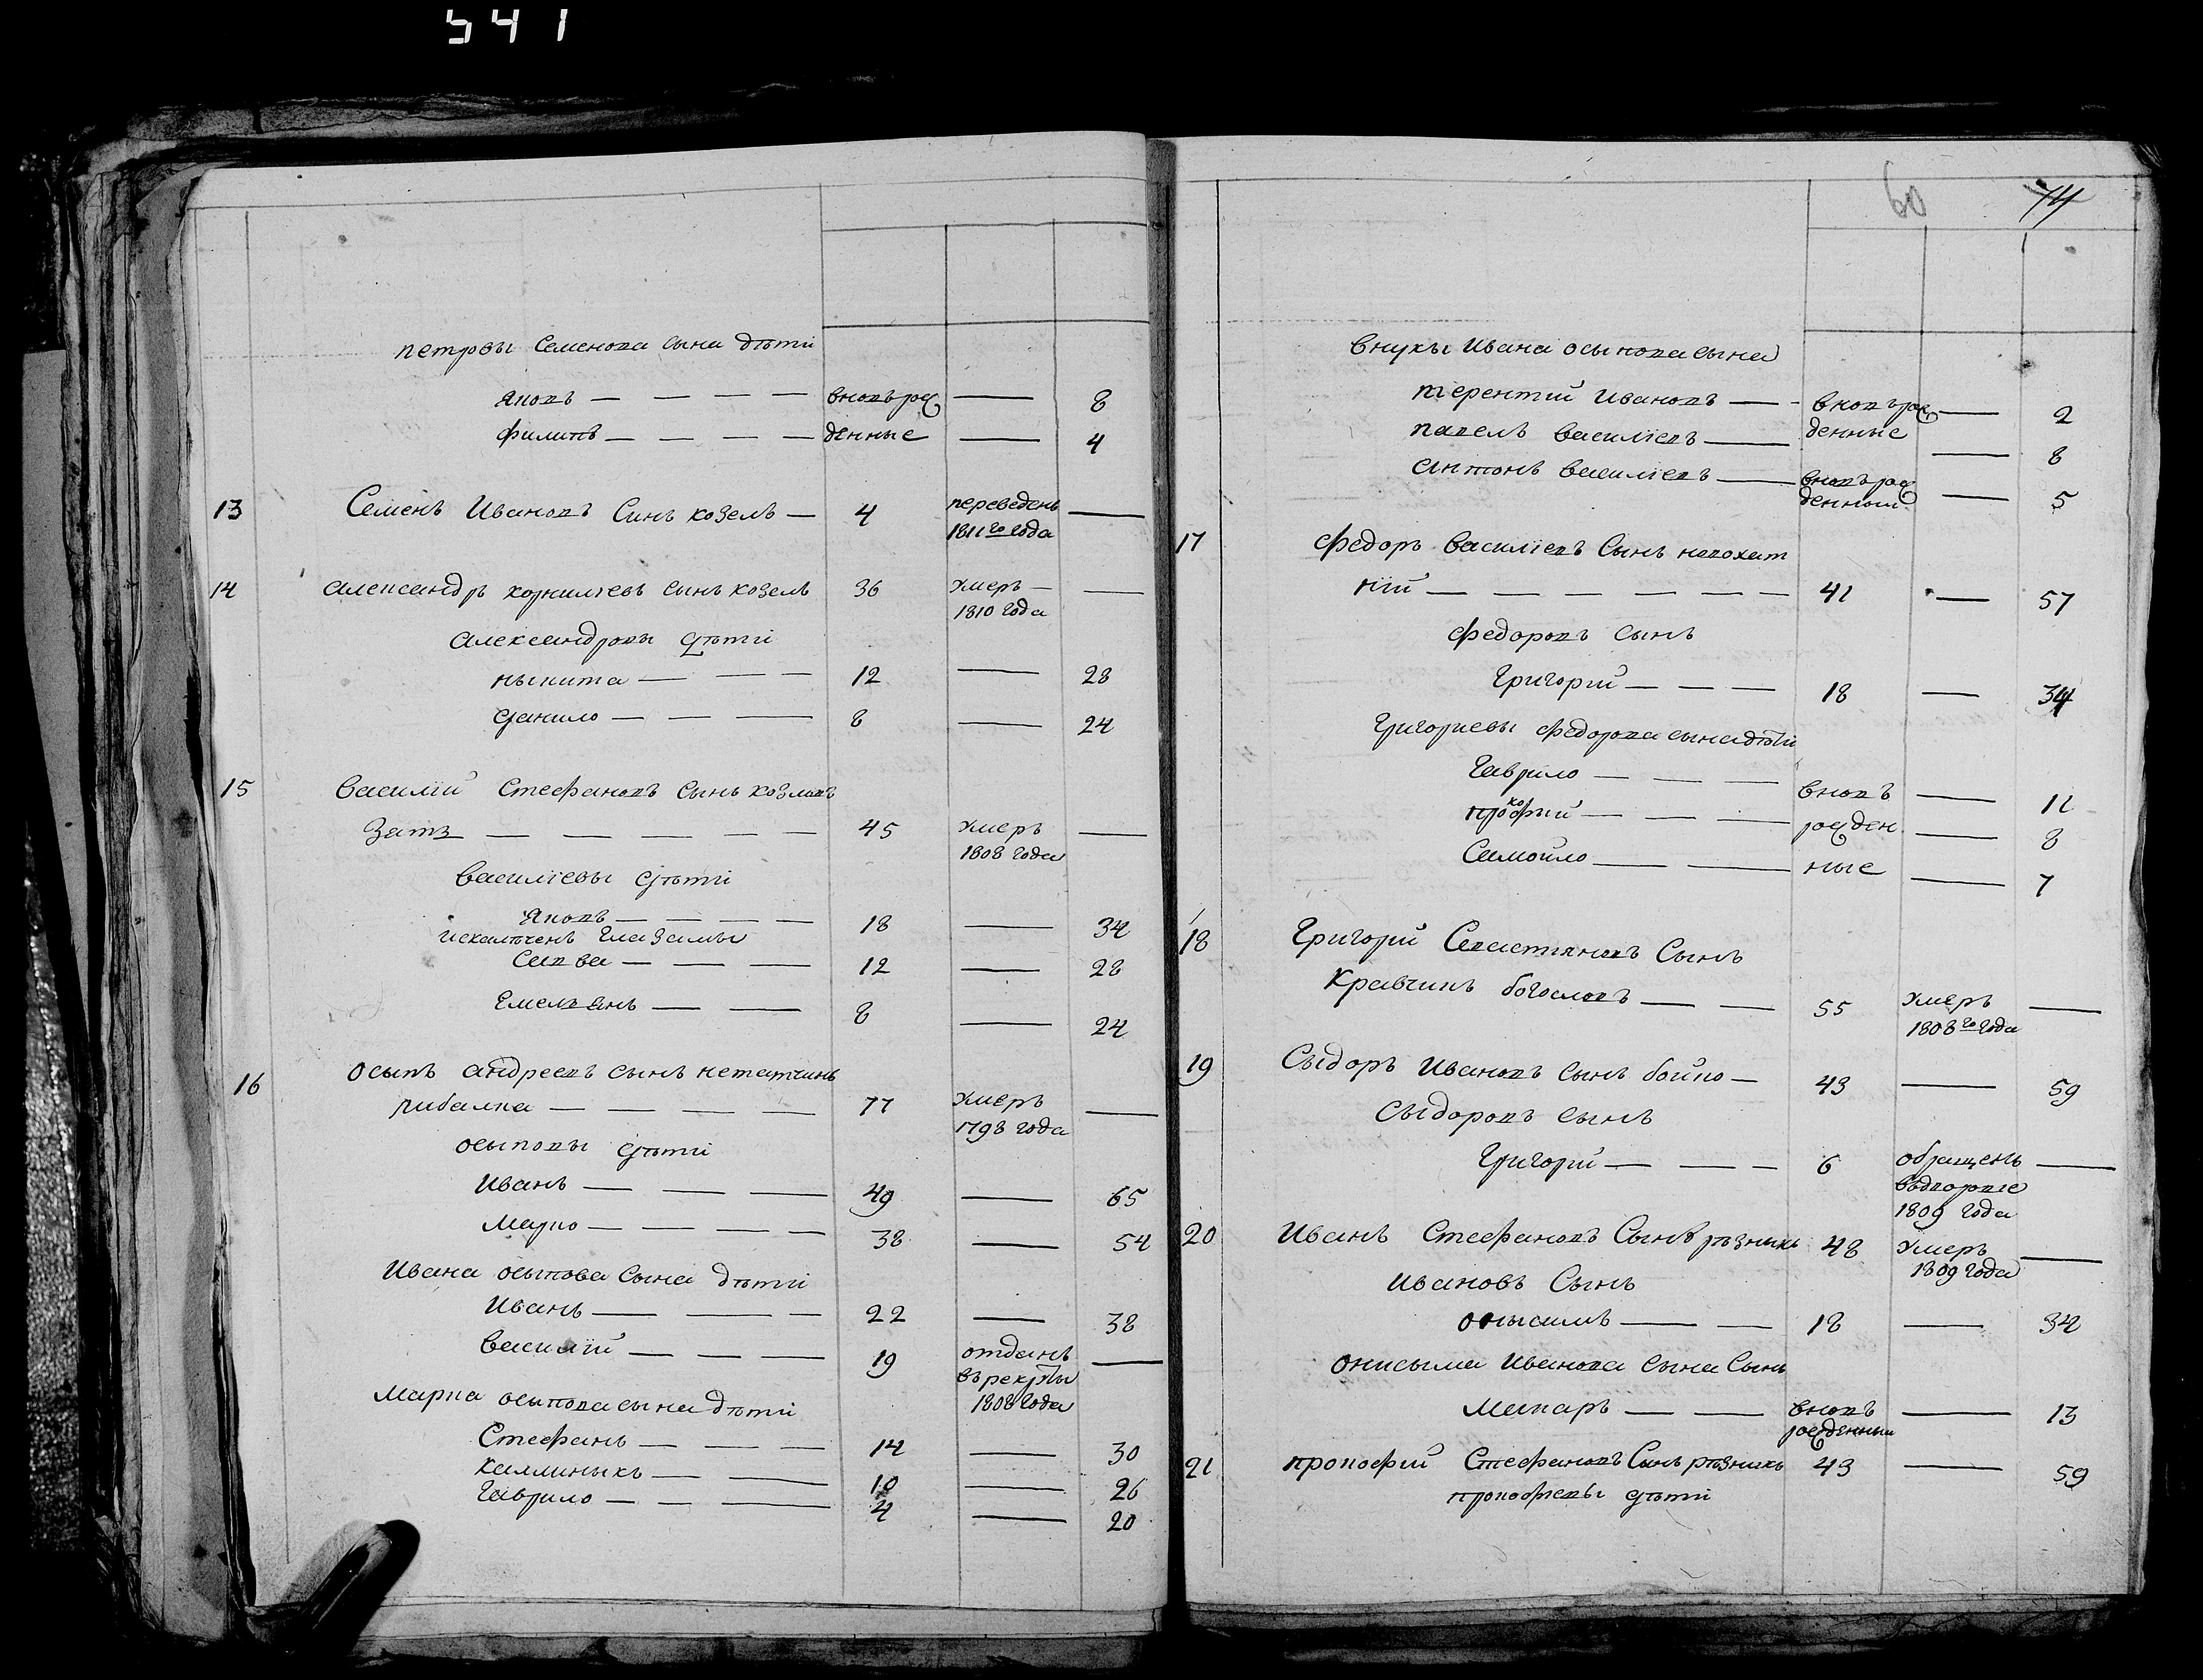 541
петровы Семенова сына дѣти
Яковъ — — — — вновь рож — 8
филипъ — — — — денные — 4
13 Семенъ Ивановъ Синъ козелъ — 4 переведенъ —
1811го года
14 Александръ корнилїевъ сынъ козелъ 36 умеръ — —
1810 года
Александровы дѣти
Ныкита — — — 12 — 28
Данило — — — 8 — 24
15 Василїй Стефановъ сынъ козловъ
Зать — — — — — 45 умеръ —
1808 года
Василїевы дѣти
Яковъ — — — — 18 — 34
искалѣченъ глазамы
Савва — — — 12 — 28
Емельянъ — — 8 — 24
16 Осыпъ андреевъ сынъ нетятчинъ
рибалка — — — — 77 умеръ —
1798 года
осыповы дѣти
Иванъ — — — 49 — 65
Марко — — — — 38 — 54
Ивана осыпова Сына дѣти
Иванъ — — — 22 — 38
Василїй — — — 19 отданъ —
въ рекруты
1808 года
Марка осыпова сына дѣти
Стефанъ — — — 14 — 30
каллиныкъ — — 10 — 26
Гаврило — — — 4 — 20
60 74
Внукы Ивана осыпова сына
терентий Ивановъ — - вновь рож — 2
павелъ василїевъ — денные — 8
антонъ василїевъ — вновь рож
денный — 5
17 федоръ василїевъ Сынъ непохат
нїй — — — — — — 41 — 57
федоровъ сынъ
Григорий — — — 18 — 34
Григориевы федорова сына дѣти
Гаврило — — — вновь — 11
прокофий — — — рожден — 8
Самойло — — ные — 7
18 Григорий Севастяновъ Сынъ
Кравчинъ богословъ — — 55 умеръ —
1808го года
19 Сыдоръ Ивановъ сынъ бойко — 43 — 59
Сыдоровъ сынъ
Григорий — — — 6 обращенъ —
въдворяне
1809 года
20 Иванъ Стефановъ Сынъ рѣзныкъ 48 умеръ —
1809 года
Ивановъ Сынъ
онысимъ — — 18 — 34
онисыма Иванова сына Сынъ
Макаръ — — вновь — 13
рожденный
21 прокофий Стефановъ Сынъ рѣзникъ 43 — 59
прокофиевы дѣти